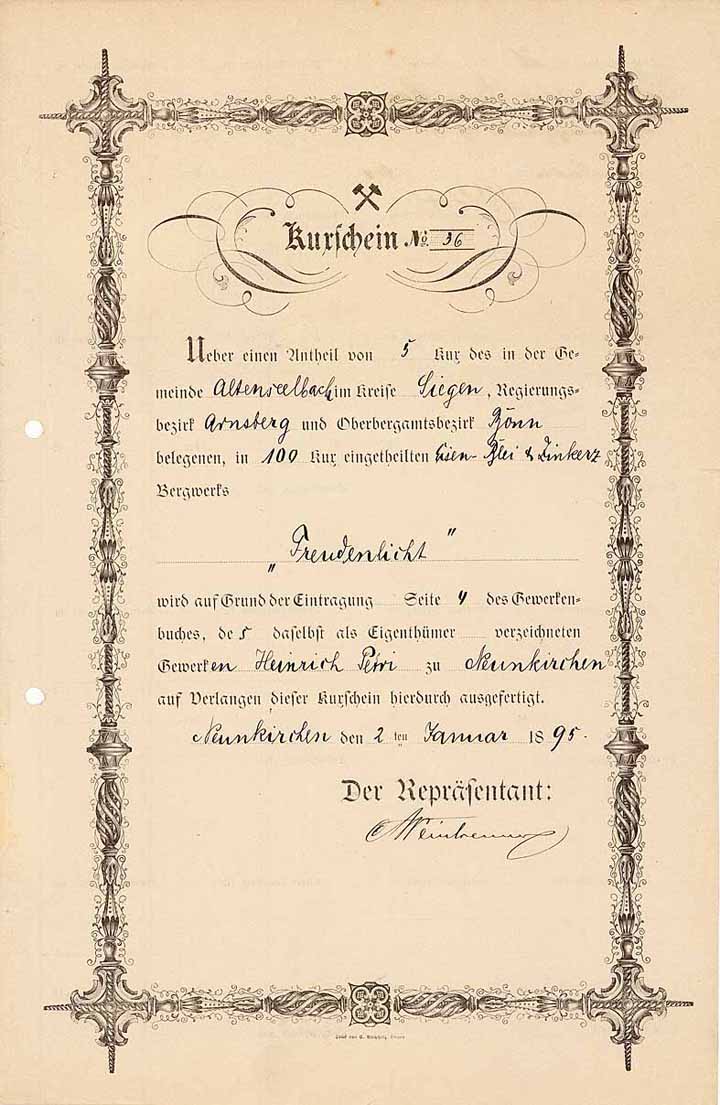 Kuxschein No. 36
Ueber einen Antheil von 5 Kux des in der Ge-
meinde Altenseelbach im Kreise Siegen, Regierungs-
bezirk Arnsberg und Oberbergamtsbezirk Bonn
belegenen, in 100 Kux eingetheilten Eisen- Blei & Zinkerz
Bergwerks
„Freudenlicht"
wird auf Grund der Eintragung Seite 4 des Gewerken-
buches, des daselbst als Eigenthümer verzeichneten
Gewerken Heinrich Petri zu Neunkirchen
auf Verlangen dieser Kuxschein hierdurch ausgefertigt.
Neunkirchen den 2ten Januar 1895.
Der Repräsentant: